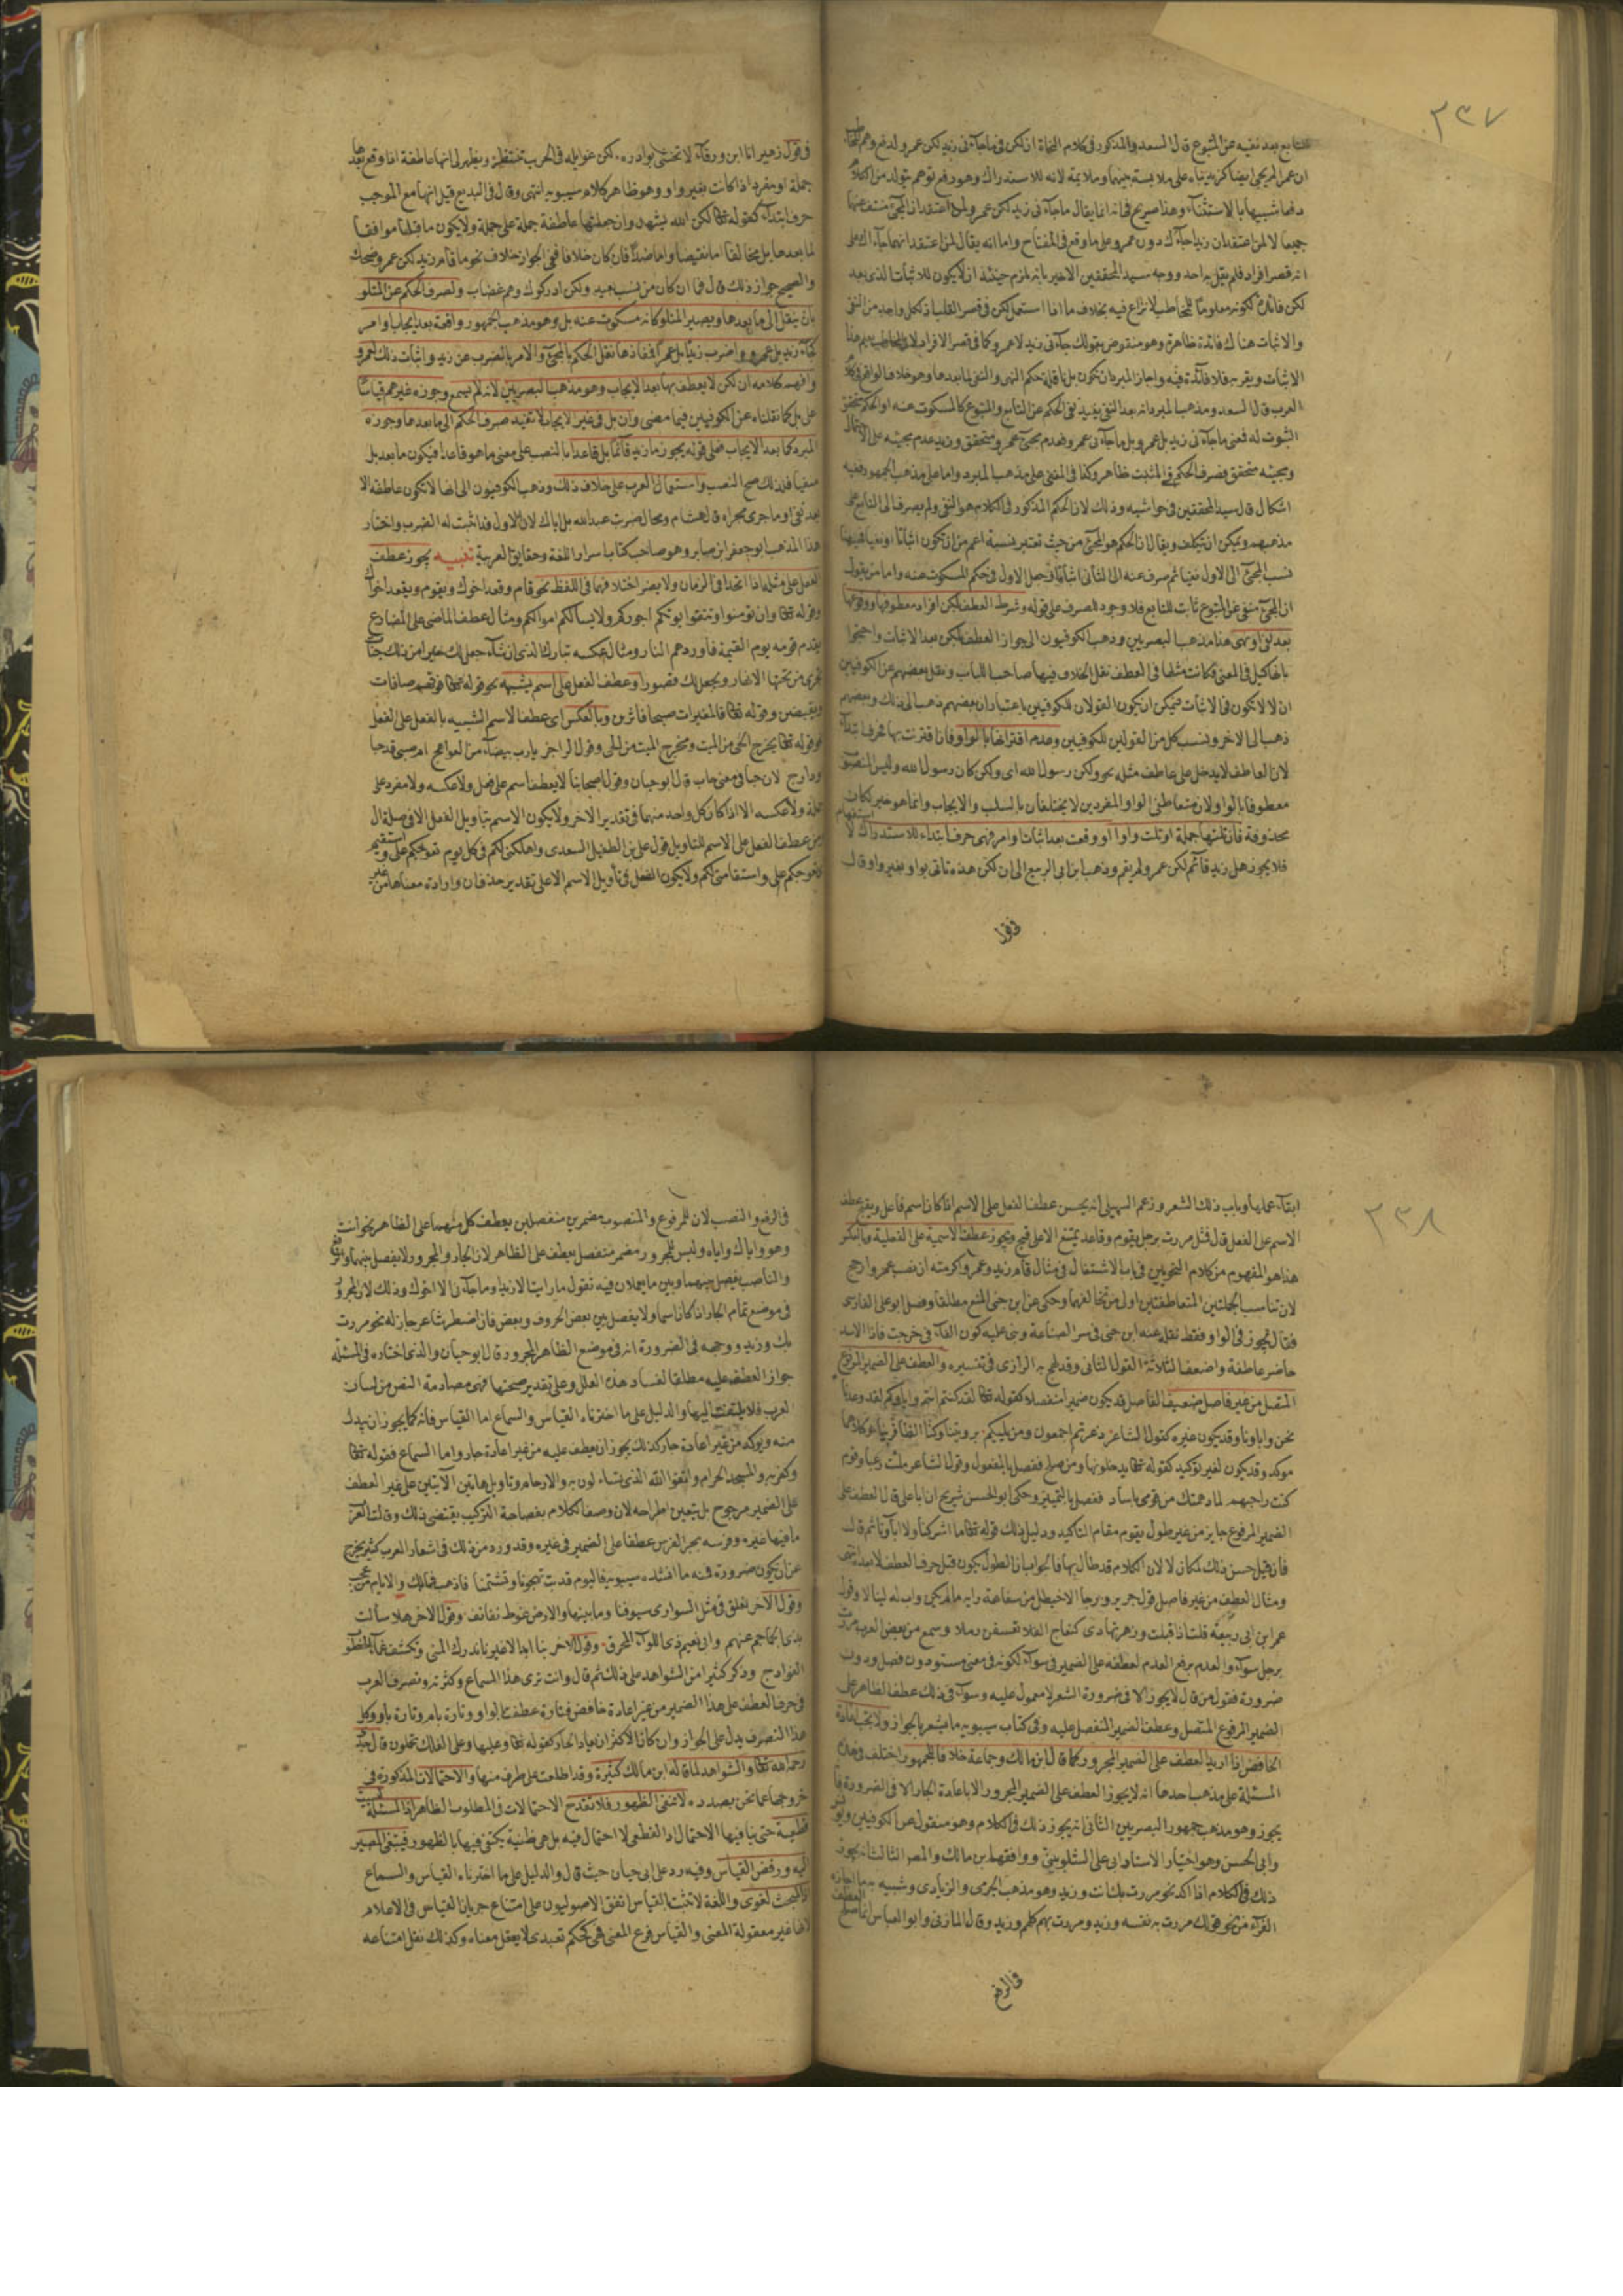 ٢٣٧
للتابع بعد نفيه عن المتبوع قال السعد والمذكور في كلام النحاة ان لكن في ما جآءني زيد لكن عمرو لدفع وهم المخاطب
ان عمرا لم يجئ ايضا كزيد بناء على ملابسة بينهما وملايمة لانه للاستدراك وهو دفع توهم يتولد من الكلام
دفعا شبيها بالاستثنآء وهذا صريح في انه انما يقال ما جآءني زيد لكن عمرو لمن اعتقد ان المجئ منتف عنهما
جميعا لا لمن اعتقد ان زيدا جآءك دون عمرو على ما وقع في المفتاح واما انه يقال لمن اعتقد انهما جآءاك على
انه قصر افراد فلم يقل به احد ووجه سيد المحققين الاخير بانه يلزم حينئذ ان لا يكون للاثبات الذي بعد
لكن فائدة لكونه معلوما للمخاطب لا نزاع فيه بخلاف ما اذا استعمل لكن في قصر القلب اذ لكل واحد من النفي
والاثبات هناك فائدة ظاهرة وهو منقوض بقولك جآءني زيد لا عمرو كما في قصر الافراد لان المخاطب يعلم هنا
الاثبات ويقر به فلا فآئدة فيه واجاز المبرد ان تكون بل ناقلة حكم النهي والنفي لما بعدها وهو خلاف الواقع في كلام
العرب قال السعد ومذهب المبرد انه بعد النفي يفيد نفي الحكم عن التابع والمتبوع كالمسكوت عنه او الحكم متحقق
الثبوت له فمعنى ما جآءني زيد بل عمرو بل ما جآءني عمرو فعدم مجئ عمرو متحقق وزيد عدم مجيئه على الاحتمال
ومجيئه متحقق فصرف الحكم في المثبت ظاهر وكذا في المنفي على مذهب المبرد واما على مذهب الجمهور ففيه
اشكال قال سيد المحققين في حواشيه وذلك لان الحكم المذكور في الكلام هو النفي ولم يصرف الى التابع على
مذهبهم ويمكن ان يتكلف ويقال ان الحكم هو المجئ من حيث تعتبر نسبة اعم من ان تكون اثباتا او نفيا فههنا
نسب المجئ الى الاول نفيا ثم صرف عنه الى الثاني اثباتا فجعل الاول في حكم المسكوت عنه واما من يقول
ان المجئ منفي عن المتبوع ثابت للتابع فلا وجود للصرف على قوله وشرط العطف بلكن افراد معطوفها ووقوعها
بعد نفي او نهي هذا مذهب البصريين وذهب الكوفيون الى جواز العطف بلكن بعد الاثبات واحتجوا
بانها كبل في المعنى فكانت مثلها في العطف نقل الخلاف فيها صاحب اللباب ونقل بعضهم عن الكوفيين
ان لا تكون في الاثبات فيمكن ان يكون القولان للكوفيين باعتبار ان بعضهم ذهب الى ذلك وبعضهم
ذهب الى الاخر ونسب كل من القولين للكوفيين وعدم اقترانها بالواو فان اقترنت بها فحرف ابتدآء
لان العاطف لا يدخل على عاطف مثله نحو ولكن رسول الله اى ولكن كان رسول الله وليس المنصوب
معطوفا بالواو لان متعاطفي الواو المفردين لا يختلفان بالسلب والايجاب وانما هو خبر لكان
محذوفة فان تلتها جملة او تلت واوا او وقعت بعد اثبات وامر فهي حرف ابتداء للاستدراك لا استفهام
فلا يجوز هل زيد قآئم لكن عمرو لم يقم وذهب ابن ابي الربيع الى ان لكن هذه تأتي بواو وبغير واو قال
في قول
في قول زهير انا ابن ورقآء لا تخشى بوادره . لكن غوايله في الحرب تنتظر ويظهر لي انها عاطفة اذا وقع بعدها
جملة او مفرد اذا كانت بغير واو وهو ظاهر كلام سيبويه انتهى وقال في البديع قيل انها مع الموجب
حرف ابتدآء كقوله تعالى لكن الله يشهد وان جعلتها عاطفة جملة على جملة ولا يكون ما قبلها موافقا
لما بعدها بل مخالفا اما نقيضا واما ضدا فان كان خلافا ففي الجواز خلاف نحو ما قام زيد لكن عمرو ضحك
والصحيح جواز ذلك قال فما ان كان من نسب بعيد ولكن ادركوك وهم غضاب ولصرف الحكم عن المتلو
بان ينقل الى ما بعدها ويصير المتلو كانه مسكوت عنه بل وهو مذهب الجمهور واقعة بعد ايجاب وامر
كجآء زيد بل عمرو واضرب زيدا بل عمرا ففادها نقل الحكم بالمجئ والامر بالضرب عن زيد واثبات ذلك لعمرو
وافهم كلامه ان لكن لا يعطف بها بعد الايجاب وهو مذهب البصريين لانه لم يسمع وجوزه غيرهم قياسا
على بل كما نقلناه عن الكوفيين فيما مضى وان بل في غير الايجاب لا تفيد صرف الحكم الى ما بعدها وجوزه
المبرد كما بعد الايجاب فعلى قوله يجوز ما زيد قآئما بل قاعدا بالنصب على معنى ما هو قاعدا فيكون ما بعد بل
منفيا فلذلك صح النصب واستعمال العرب على خلاف ذلك وذهب الكوفيون الى انها لا تكون عاطفة الا
بعد نفي او ما جرى مجراه قال هشام ومحال ضربت عبد الله بل اياك لان الاول قد اثبت له الضرب واختار
هذا المذهب ابو جعفر ابن صابر وهو صاحب كتاب اسرار اللغة وحقايق العربية تنبيه يجوز عطف
الفعل على مثله اذا اتحدا في الزمان ولا يضر اختلافهما في اللفظ نحو قام وقعد اخوك ويقوم ويقعد اخوك
وقوله تعالى وان تؤمنوا وتتقوا يؤتكم اجوركم ولا يسألكم اموالكم ومثال عطف الماضي على المضارع
يقدم قومه يوم القيمة فاوردهم النار ومثال عكسه تبارك الذي ان شآء جعل لك خيرا من ذلك جنات
تجري من تحتها الانهار ويجعل لك قصورا وعطف الفعل على اسم يشبهه نحو قوله تعالى فوقهم صافات
ويقبضن وقوله تعالى فالمغيرات صبحا فاثرن وبالعكس اى عطف الاسم الشبيه بالفعل على الفعل
نحو قوله تعالى يخرج الحي من الميت ومخرج الميت من الحي وقول الراجز يا رب بيضآء من العواهج ام صبي قد حبا
ودارج لان حبا في معنى حاب قال ابو حيان وقول اصحابنا لا يعطف اسم على فعل ولا عكسه ولا مفرد على
جملة ولا عكسه الا اذا كان كل واحد منهما في تقدير الاخر ولا يكون الاسم بتأويل الفعل الا في صلة ال
ومن عطف الفعل على الاسم للتاويل قول علي بن الطفيل السعدي واهلكني لكم في كل يوم تعوجكم علي واستقيم
تعوجكم علي واستقامتي لكم ولا يكون الفعل في تأويل الاسم الا على تقدير حذف ان وارادة معناها من غير
٢٣٨
ابقآء عملها وباب ذلك الشعر وزعم السهيلي انه يحسن عطف الفعل على الاسم اذا كان اسم فاعل ويقبح عطف
الاسم على الفعل قال فمثل مررت برجل يقوم وقاعد يمتنع الا على قبح ويجوز عطف الاسمية على الفعلية وبالعكس
هذا هو المفهوم من كلام النحويين في باب الاشتغال في مثال قام زيد وعمرو اكرمته ان نصب عمرو ارجح
لان تناسب الجملتين المتعاطفتين اولى من تخالفهما وحكي عن ابن جني المنع مطلقا وفصل ابو علي الفارسي
فقال يجوز في الواو فقط نقله عنه ابن جني في سر الصناعة وبنى عليه كون الفآء في خرجت فاذا الاسد
حاضر عاطفة واضعف الثلاثة القول الثاني وقد لهج به الرازي في تفسيره والعطف على الضمير المرفوع
المتصل من غير فاصل ضعيف الفاصل قد يكون ضميرا منفصلا كقوله تعالى لقد كنتم انتم واباؤكم لقد وعدنا
نحن واباونا وقد يكون غيره كقول الشاعر ذعرتم اجمعون ومن يليكم . برويتنا وكنا
موكد وقد يكون لغير توكيد كقوله تعالى يدخلونها ومن صلح ففصل بالمفعول وقول الشاعر ملئت رعبا وقوم
كنت راجيهم لما دهمتك من قومي باساد ففصل بالتمييز وحكى ابو الحسن شريح ان ابا علي قال العطف على
الضمير المرفوع جايز من غير طول يقوم مقام التاكيد ودليل ذلك قوله تعالى ما اشركنا ولا اباؤنا ثم قال
فان قيل حسن ذلك لمكان لا لان الكلام قد طال بها فالجواب ان الطول يكون قبل حرف العطف لا بعده انتهى
ومثال العطف من غير فاصل قول جرير ورجا الاخيطل من سفاهة رايه ما لم يكن واب له لينالا وقول
عمر ابن ابي ربيعة قلت اذ اقبلت وزهر تهادى كنعاج الفلا تعسفن رملا وسمع من بعض العرب مررت
برجل سوآء والعدم برفع العدم لعطفه على الضمير في سوآء لكونه في معنى مستو دون فصل ودون
ضرورة فقول من قال لا يجوز الا في ضرورة الشعر لا معول عليه وسوآء في ذلك عطف الظاهر على
الضمير المرفوع المتصل وعطف الضمير المنفصل عليه وفي كتاب سيبويه ما يشعر بالجواز ولا يجب اعادة
الخافض اذا اريد العطف على الضمير المجرور كما قال ابن مالك وجماعة خلافا للجمهور اختلف في هذه
المسئلة على مذاهب احدها انه لا يجوز العطف على الضمير المجرور الا باعادة الجار الا في الضرورة
يجوز وهو مذهب جمهور البصريين الثاني انه يجوز ذلك في الكلام وهو منقول عن الكوفيين ويونس
وابي الحسن وهو اختيار الاستاد ابي علي الشلوبيني ووافقهم ابن مالك والمصنف الثالث انه يجوز
ذلك في الكلام اذا اكد نحو مررت بك انت وزيد وهو مذهب الجرمي والزيادي وشبيه به ما اجازه
الفرآء من نحو قولك مررت به نفسه وزيد ومررت بهم كلهم وزيد وقال المازني وابو العباس انما صلح العطف
في الرفع
في الرفع والنصب لان للمرفوع والمنصوب مضمرين منفصلين يعطف كل منهما على الظاهر نحو انت
وهو واياك واياه وليس للمجرور مضمر منفصل يعطف على الظاهر لان الجار والمجرور لا يفصل بينهما والرافع
والناصب يفصل بينهما وبين ما يعملان فيه تقول ما رايت الا زيدا وما جآءني الا اخوك وذلك لان المجرور
في موضع تمام الجار اذا كان اسما ولا يفصل بين بعض الحروف وبعض فان اضطر شاعر جاز له نحو مررت
بك وزيد ووجهه في الضرورة انه في موضع الظاهر المجرور قال ابو حيان والذي اختاره في المسئلة
جواز العطف عليه مطلقا لفساد هذه العلل وعلى تقدير صحتها فهي مصادمة النص من لسان
العرب فلا يلتفت اليها والدليل على ما اخترناه القياس والسماع اما القياس فانه كما يجوز ان يبدل
منه ويوكد من غير اعادة جار كذلك يجوز ان يعطف عليه من غير اعادة جار واما السماع فقوله تعالى
وكفر به والمسجد الحرام واتقوا الله الذي تساءلون به والارحام وتاويل هاتين الايتين على غير العطف
على الضمير مرجوح بل يتعين اطراحه لان وصف الكلام بفصاحة التركيب يقتضي ذلك وقالت العرب
ما فيها غيره وفرسه بجر الفرس عطفا على الضمير في غيره وقد ورد من ذلك في اشعار العرب كثير يخرج
عن ان يكون ضرورة فمنه ما انشده سيبويه فاليوم قدبت تهجونا وتشتمنا فاذهب فما بك والايام من عجب
وقول الآخر نعلق في مثل السواري سيوفنا وما بينها والارض غوط نفانف وقول الاخر هلا سألت
بذي الجماجم عنهم وابي نعيم ذي اللوآء المحرق . وقول الاخر بنا ابدا لا غيرنا تدرك المنى وتكشف غمآء الخطوب
الفوادح وذكر كثيرا من الشواهد على ذلك ثم قال وانت ترى هذا السماع وكثرته وتصرف العرب
في حرف العطف على هذا الضمير من غير اعادة خافض فتارة عطفت بالواو وتارة بام وتارة باو وكل
هذا التصرف يدل على الجواز وان كان الاكثر ان يعاد الجار كقوله تعالى وعليها وعلى الفلك تحملون قال جد
رحمه الله تعالى والشواهد لما قاله ابن مالك كثيرة وقد اطلعت على طرف منها والاحتمالات المذكورة في
خروجها عما نحن بصدده لا تنفي الظهور فلا تقدح الاحتمالات في المطلوب الظاهر اذ المسئلة ليست
قطعية حتى ينافيها الاحتمال اذ القطعي لا احتمال فيه بل هي ظنية يكتفى فيها بالظهور فينبغي المصير
اليه ورفض القياس وفيه رد على ابي حيان حيث قال والدليل على ما اخترناه القياس والسماع
اذ المبحث لغوي واللغة لا تثبت بالقياس اتفق الاصوليون على امتناع جريان القياس في الاعلام
لانها غير معقولة المعنى والقياس فرع المعنى فهي كحكم تعبدي لا يعقل معناه وكذلك نقل امتناعه